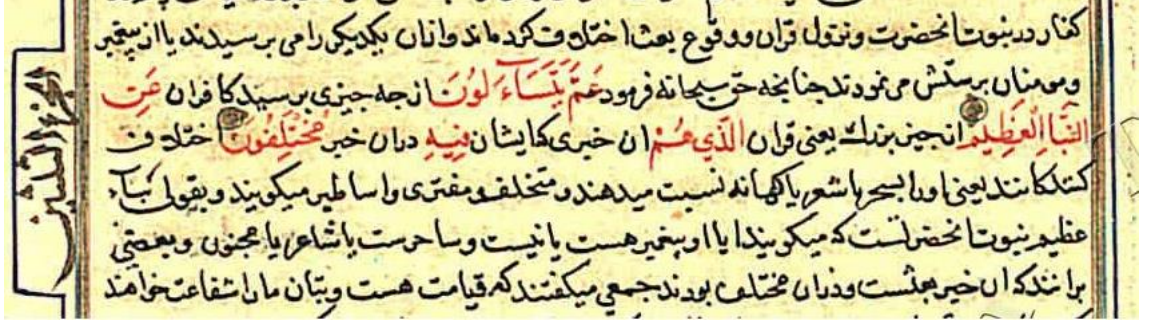 کفار در نبوت انحضرت و نزول قران و وقوع بعث اختلاف کرده اند و ازان یکدیکر را می پرسیدند یا از پیغمبر
و مومنان پرسش می نمودند چنانچه حق سبحانه فرمود عَمَّ یَتَسَاءَلُونَ از چه چیزی پرسید کافران عَنِ
النَّبَإِ الْعَظِیمِ از چیز بزرك یعنی قران الَّذِی هُمْ ان خبری که ایشان فِیهِ دران خبر مُخْتَلِفُونَ اختلاف
کنندکانند یعنی اورا بسحر یا شعر یا کهانه نسبت میدهند و متخلف و مفتری و اساطیر میکویند و بقولی نباء
عظیم نبوت انحضرتست که میکویند ایا او پیغمبر هست یا نیست و ساحرست یا شاعر یا مجنون و بعضی
برانند که ان خبر بعثست و دران مختلف بودند جمعی میکفتند که قیامت هست و بتان ما را شفاعت خواهند
الجزء الثلثین